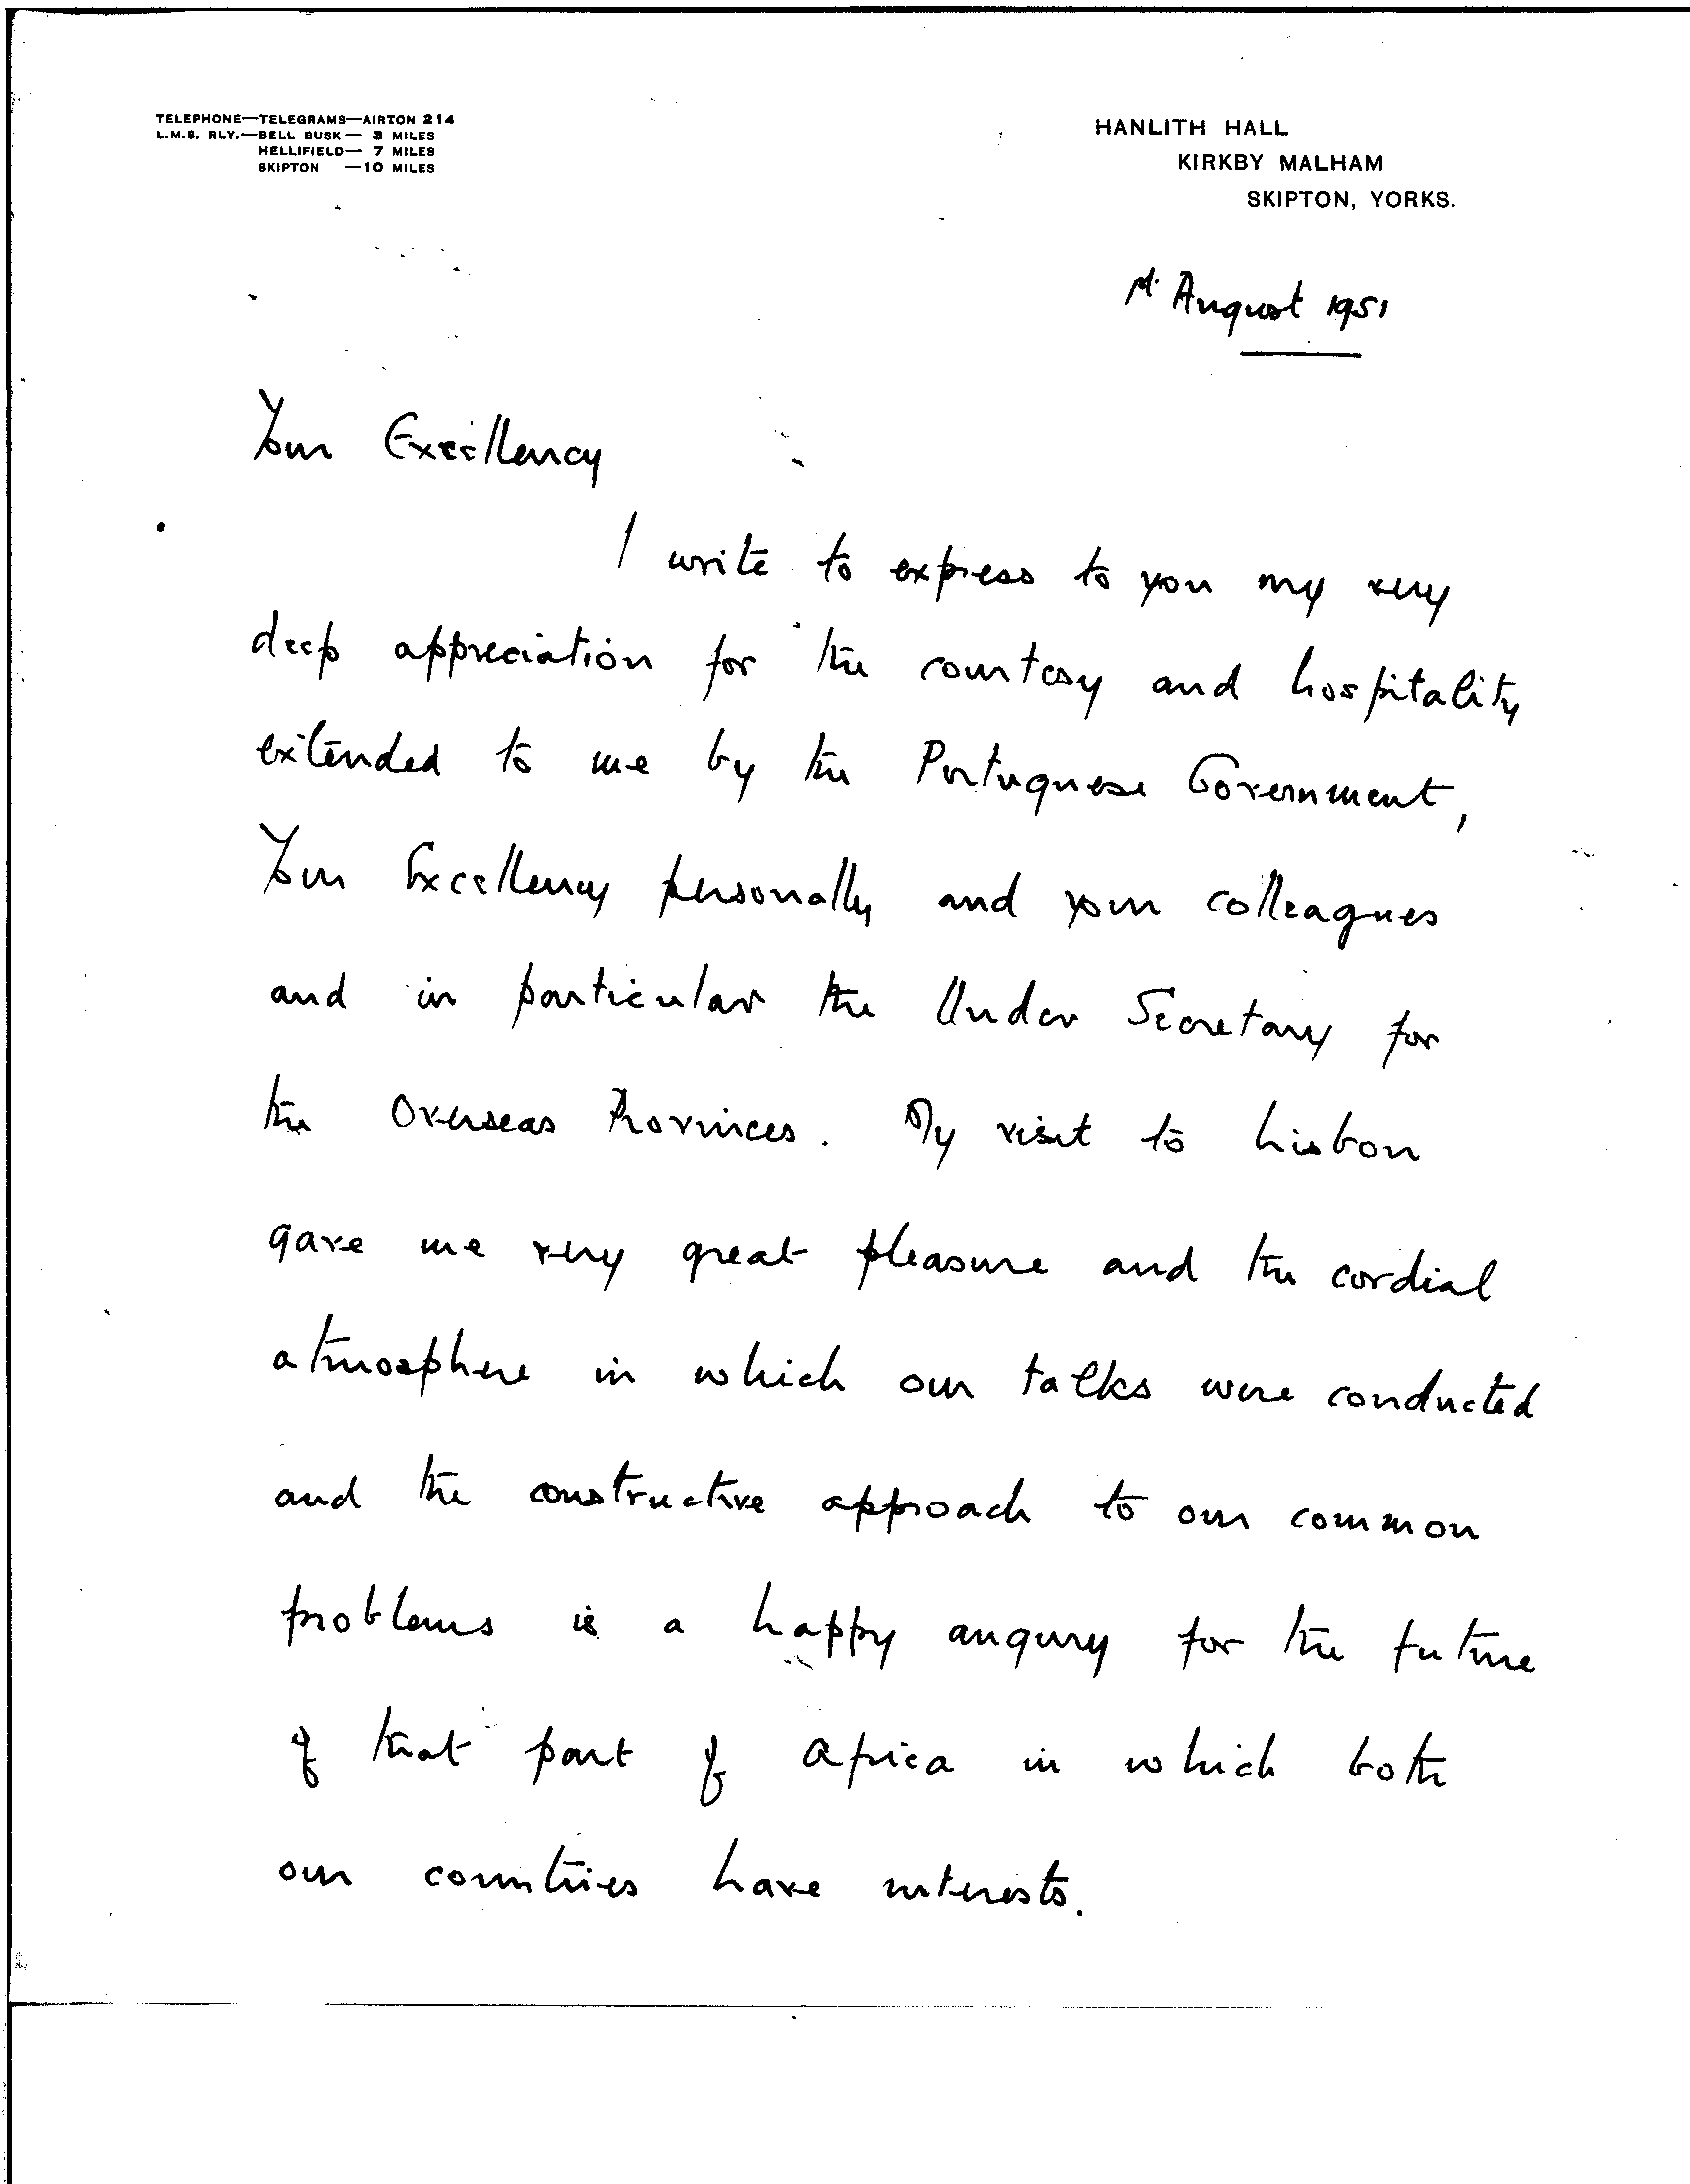 TELEPHONE—TELEGRAMS—AIRTON 214
L.M.S. RLY.—BELL BUSK— 3 MILES
HELLIFIELD— 7 MILES
SKIPTON —10 MILES
HANLITH HALL
KIRKBY MALHAM
SKIPTON, YORKS.
August 1951
Your Excellency
I write to express to you my very
deep appreciation for the courtesy and hospitality
extended to me by the Portuguese Government,
Your Excellency personally and your colleagues
and in particular the Under Secretary for
the Overseas Provinces. My visit to Lisbon
gave me very great pleasure and the cordial
atmosphere in which our talks were conducted
and the constructive approach to our common
problems is a happy augury for the future
of that part of Africa in which both
our countries have interests.